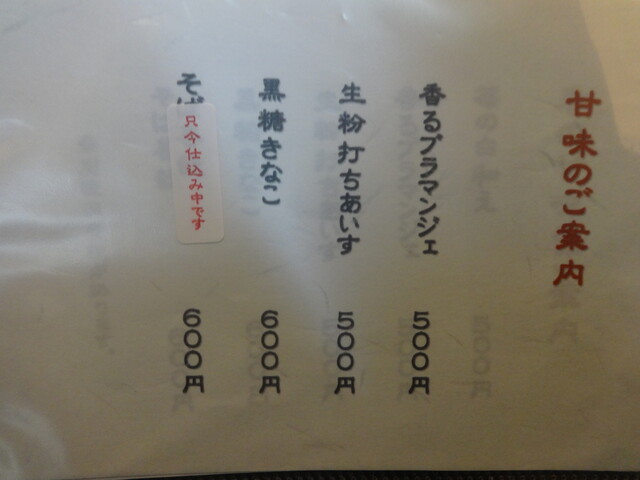 甘味のご案内
香るブラマンジェ 500円
生粉打ちあいす 500円
黒糖きなこ 600円
そば 600円
只今仕込み中です